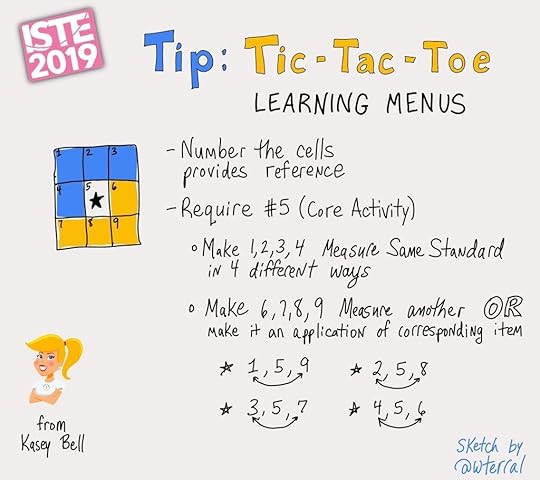 ISTE
2019
Tip: Tic-Tac-Toe
LEARNING MENUS
1 2 3
4 5 6
7 8 9
- Number the cells
provides reference
- Require #5 (Core Activity)
○ Make 1,2,3,4 Measure Same Standard
in 4 different ways
○ Make 6,7,8,9 Measure another OR
make it an application of corresponding item
★ 1,5,9 ★ 2,5,8
★ 3,5,7 ★ 4,5,6
from
Kasey Bell
Sketch by
@wterral